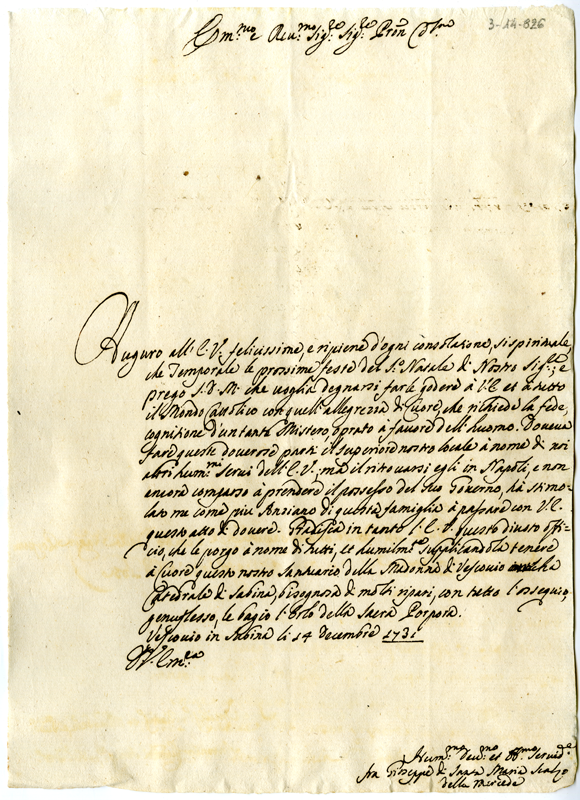 3-14-826
Em.mo e Reu.mo Sig.re Sig.re Pron
Auguro all' E. V. felicissime, e ripiene d'ogni consolazione, si spirituale
che Temporale le prossime feste del S.o Natale di Nostro Sig.re; e
prego S. D. M. che voglia degnarsi farle godere à V. E. et à tutto
il Mondo Cattolico con quell' allegrezza di Cuore, che richiede la fede,
cognitione d'un tanto Mistero oprato à favore dell' huomo. Doueua
fare queste douerose parti il superiore nostro locale à nome di noi
altri hum.mi serui dell' E. V.; mà il ritrouarsi egli in Napoli, e non
encora comparso à prendere il possesso del suo Gouerno, hà stimo-
lato me come più Anziano di questa famiglia à passare con V. E.
questo atto di douere. Gradisca in tanto l' E. V. questo diuoto offi-
cio, che le porgo à nome di tutti, et humilm.te supplicandola tenere
à Cuore questo nostro Santuario della Madonna di Vescouio
Catedrale di Sabina, bisognosa di molti ripari, con tutto l'ossequio,
genuflesso, le bagio l'Orlo della Sacra Porpora.
Vescouio in Sabina li 14 Decembre 1731
D. V. Em.za
Hum.mo Deu.mo et Obb.mo Seruid.e
fra Giuseppe di Santa Maria Scalzo
della Mercede